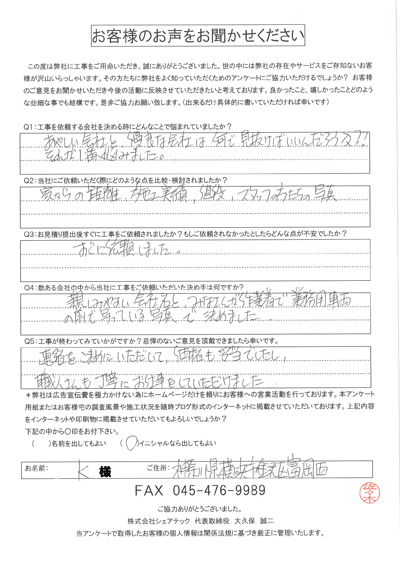 お客様のお声をお聞かせください
この度は弊社に工事をご用命いただき、誠にありがとうございました。世の中には弊社の存在やサービスをご存知ないお客
様が沢山いらっしゃいます。その方たちに弊社をよく知っていただくためのアンケートにご協力いただけるでしょうか? お客様
のご意見をお聞かせいただき今後の活動に反映させていただきたいと考えております。良かったこと、嬉しかったことどのよう
な些細な事でも結構です。是非ご協力お願い致します。(出来るだけ具体的に書いていただければ幸いです)
Q1:工事を依頼する会社を決める時にどんなことで悩まれていましたか?
あやしい会社と優良な会社は何で見抜けばいいんだろう??
そんな1番悩みました。
Q2:当社にご依頼いただく際にどのような点を比較・検討されましたか?
家からの距離、施工実績、値段、スタッフの方たちの写真
Q3:お見積り提出後すぐにご依頼されましたか?もしご依頼されなかったとしたらどんな点が不安でしたか?
すぐに依頼しました。
Q4:数ある会社の中から当社に工事をご依頼いただいた決め手は何ですか?
親しみやすい会社名と、みなさんが作業着で業務用車両
の前で写っている写真で決めました。
Q5:工事が終わってみていかがですか?忌憚のないご意見を頂戴できましたら幸いです。
連絡をこまめにいただいて、価格も妥当でしたし、
職人さんも丁寧にお仕事をしていただけました
*弊社は広告宣伝費を極力かけない為にホームページだけを頼りにお客様への営業活動を行っております。本アンケート
用紙またはお客様宅の調査風景や施工状況を随時ブログ形式のインターネットに掲載させていただいております。上記内容
をインターネットや印刷物に掲載させていただいてもよろしいでしょうか?
下記の中から〇印をお付下さい。
( )名前を出してもよい (〇)イニシャルなら出してもよい
お名前: K 様 ご住所: 神奈川県横浜市金沢区富岡西
FAX 045-476-9989
佐々木
ご協力ありがとうございました。
株式会社シェアテック 代表取締役 大久保 誠二
当アンケートで取得したお客様の個人情報は関係法規に基づき厳正に管理いたします。